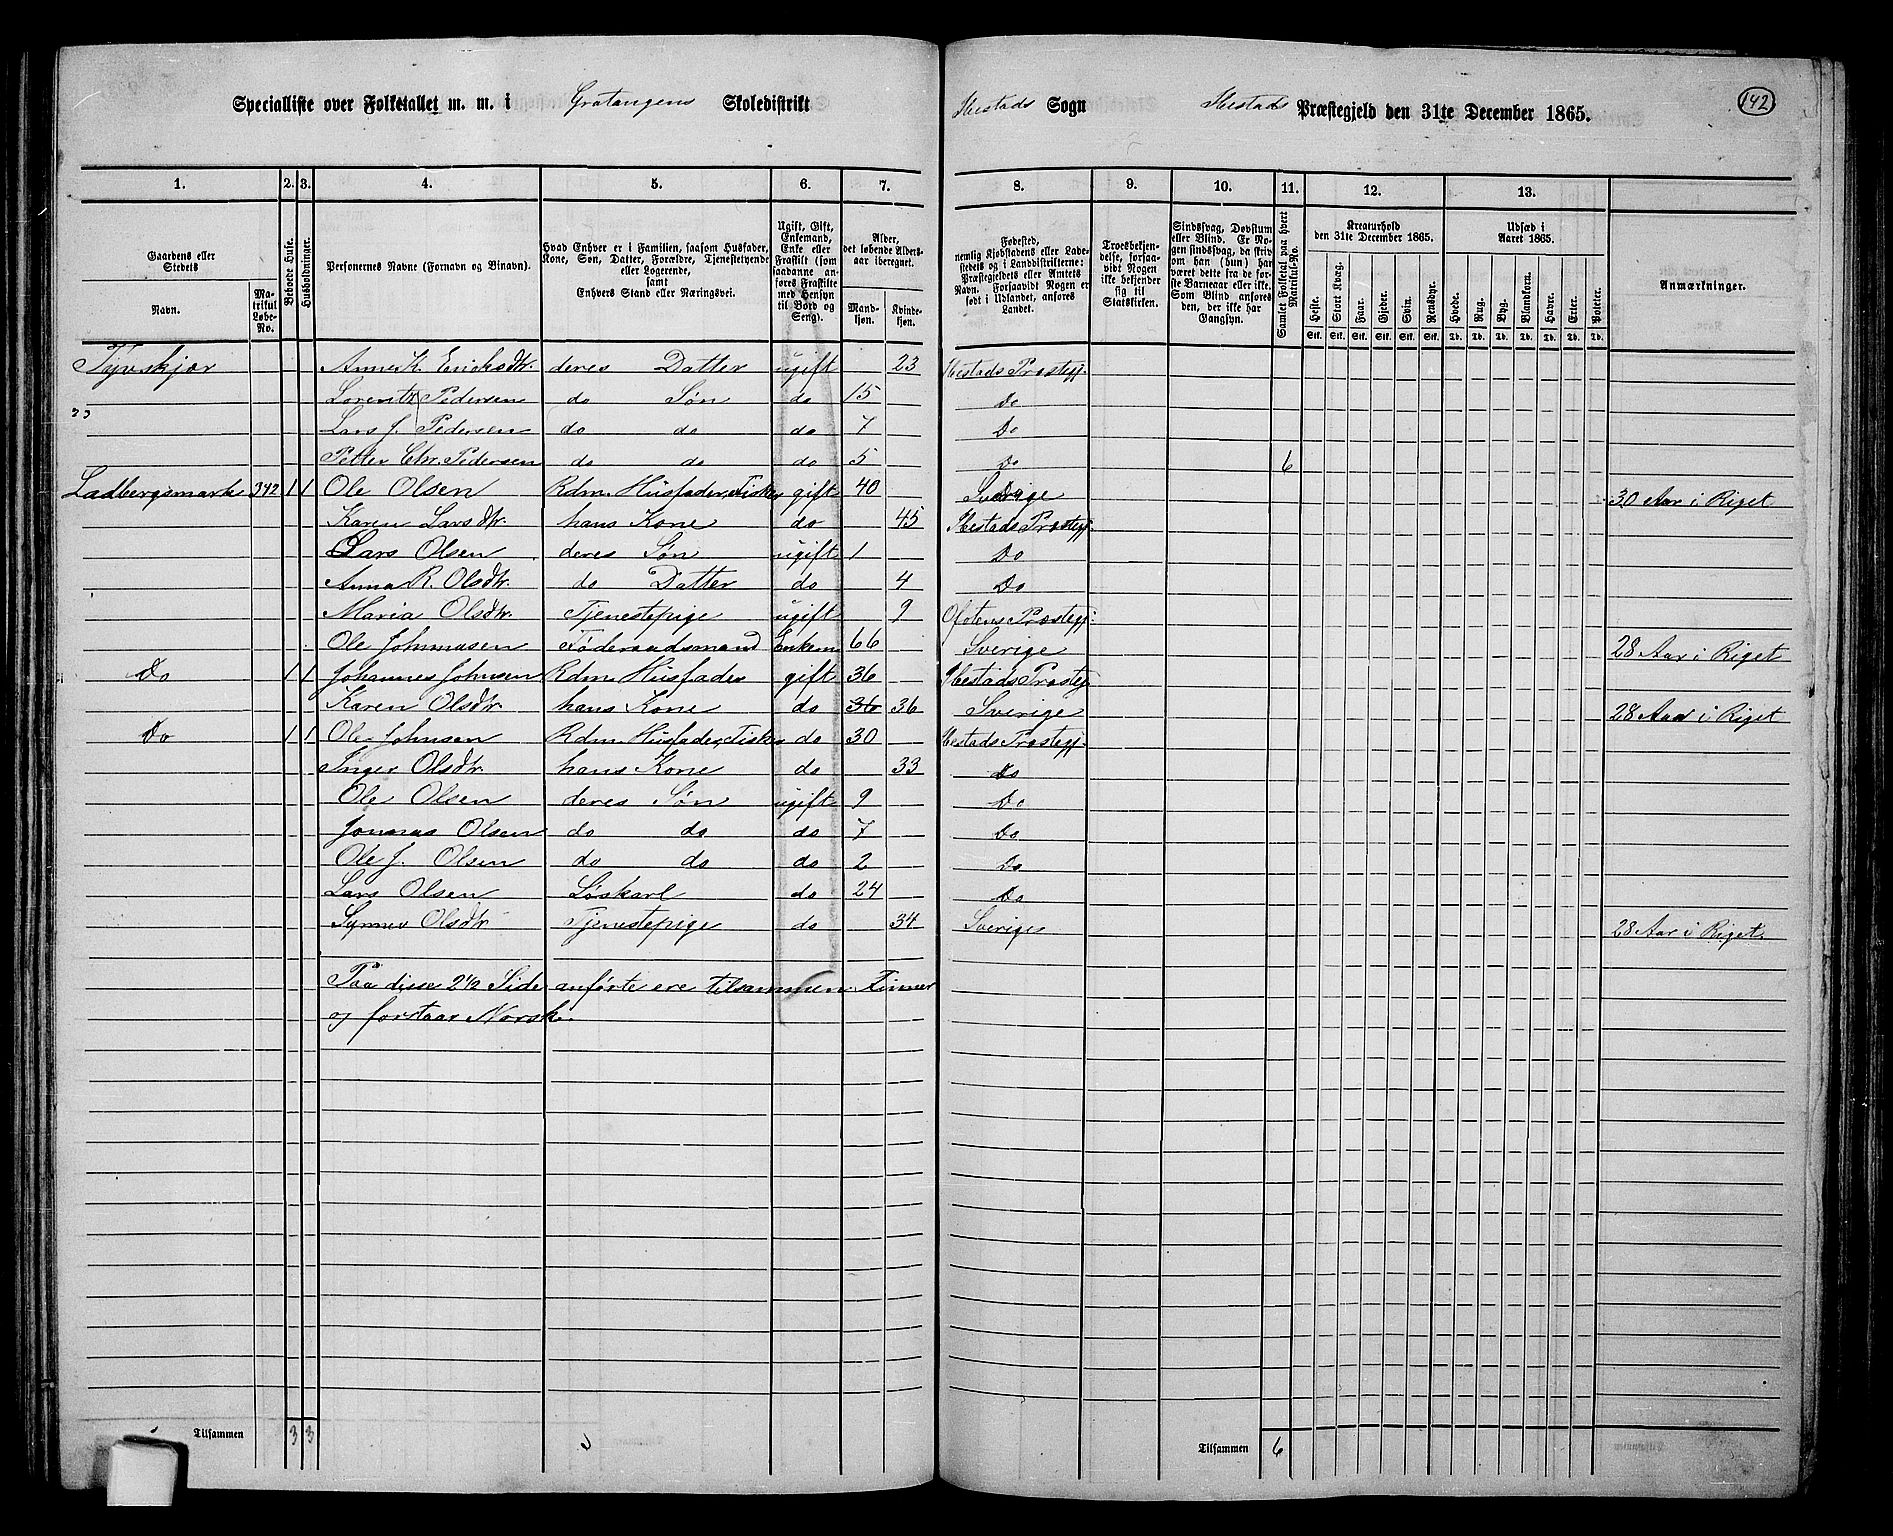 Specialliste over Folketallet m. m. i Gratangens Skoledistrikt Ibestads Sogn Ibestads Præstegjeld den 31te December 1865. 142
1. 2. 3. 4. 5. 6. 7. 8. 9. 10. 11. 12. 13.
Gaardens eller Stedets
Navn.
Matrikul Løbe-No.
Beboede Huse.
Husholdninger.
Personernes Navne (Fornavn og Binavn).
Hvad Enhver er i Familien, saasom Husfader, Kone, Søn, Datter, Forældre, Tjenestetyende eller Logerende, samt Enhvers Stand eller Næringsvei.
Ugift, Gift, Enkemand, Enke eller Fraskilt (som saadanne anføres Fraskilte med Hensyn til Bord og Seng).
Alder, det løbende Alders-aar iberegnet.
Mand-kjøn.
Kvinde-kjøn.
Fødested, nemlig Kjøbstadens eller Ladestedets og i Landdistrikterne: Præstegjeldets eller Amtets Navn. Forsaavidt Nogen er født i Udlandet, anføres Landet.
Troesbekjendelse, forsaavidt Nogen ikke bekjender sig til Statskirken.
Sindssvag, Døvstum eller Blind. Er Nogen sindssvag, da skriv om han (hun) har været dette fra de første Barneaar eller ikke. Som Blind anføres den, der ikke har Gangsyn.
Samlet Folketal paa hvert Matrikul-No.
Kreaturhold den 31te December 1865.
Heste. Stort Kvæg. Faar. Gjeder. Svin. Rensdyr.
Stk. Stk. Stk. Stk. Stk. Stk.
Udsæd i Aaret 1865.
Hvede. Rug. Byg. Blandkorn. Havre. Erter. Poteter.
Td. Td. Td. Td. Td. Td. Td.
Anmærkninger.
Tyvskjær Anne K. Ericksdtr. deres Datter ugift 23 Ibestads Præstegj.
Lorents Pedersen do Søn do 15 Do
Lars J. Pedersen do do do 7 Do
Petter Chr. Pedersen do do do 5 Do 6
Ladbergsmark 342 1 1 Ole Olsen Rdm. Husfader, Fisker gift 40 Sverige 30 Aar i Riget
Karen Larsdtr. hans Kone do 45 Ibestads Præstegj.
Lars Olsen deres Søn ugift 1 Do
Anna R. Olsdtr. do Datter do 4 Do
Maria Olsdtr. Tjenestepige ugift 9 Ofotens Præstegj.
Ole Johnnasen Føderaadsmand Enkem 66 Sverige 28 Aar i Riget
Do 1 1 Johannes Johnsen Rdm. Husfader gift 36 Ibestads Præstegj
Karen Olsdtr. hans Kone do 36 36 Sverige 28 Aar i Riget
Do 1 1 Ole Johnsen Rdm. Husfader, Fisker do 30 Ibestads Præstegj.
Inger Olsdtr. hans Kone do 33 Do
Ole Olsen deres Søn ugift 9 Do
Jonnas Olsen do do do 7 Do
Ole J. Olsen do do do 2 Do
Lars Olsen Løskarl do 24 Do
Synnev Olsdtr. Tjenestepige do 34 Sverige 28 Aar i Riget.
Paa disse 2½ Side anførte ere tilsammen Finner
og forstaar Norsk.
Tilsammen 3 3 Tilsammen 6